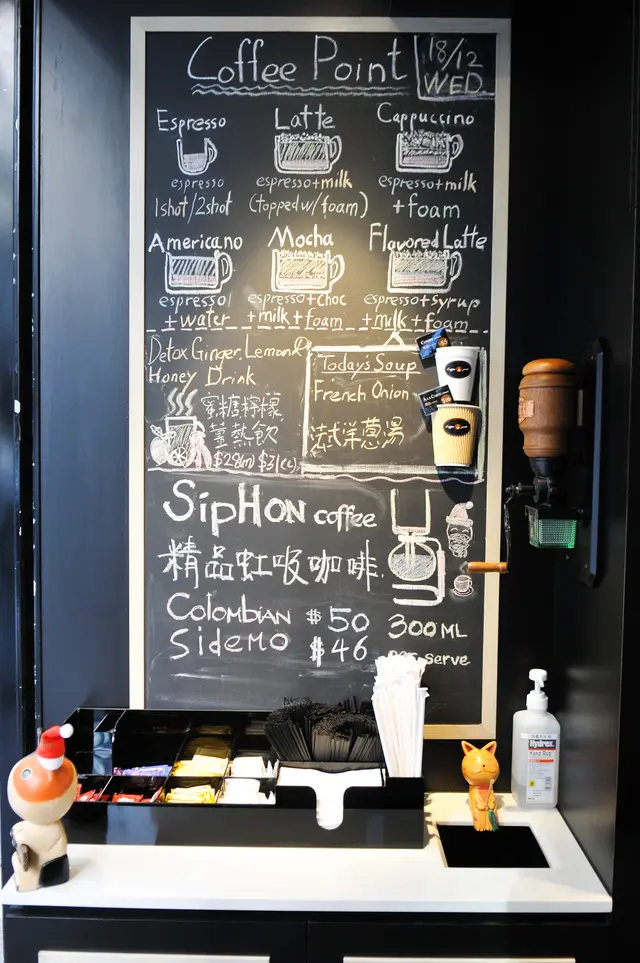 Coffee Point
18/12
WED.
Espresso
Latte
Cappuccino
espresso
espresso+milk
espresso+milk
1shot/2shot
(topped w/foam)
+foam
Americano
Mocha
Flavored Latte
espresso
espresso+choc
espresso+syrup
+water
+milk+foam
+milk+foam
Detox Ginger Lemon
Honey Drink
蜜糖檸檬
薑熱飲
Today's Soup
French Onion
法式洋蔥湯
SipHON coffee
精品虹吸咖啡
Colombian $50
Sidemo $46
300ML
per serve
Hydrex
Hand Rub